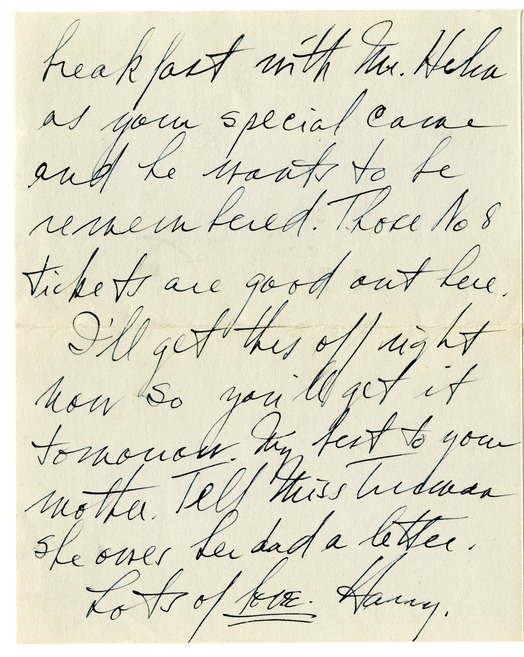 breakfast with Mr. Hehn
as your special came
and he wants to be
remembered. Those No 8
tickets are good out here.
I'll get this off right
now so you'll get it
tomorrow. My best to your
mother. Tell Miss Truman
she owes her dad a letter.
Lots of love. Harry.